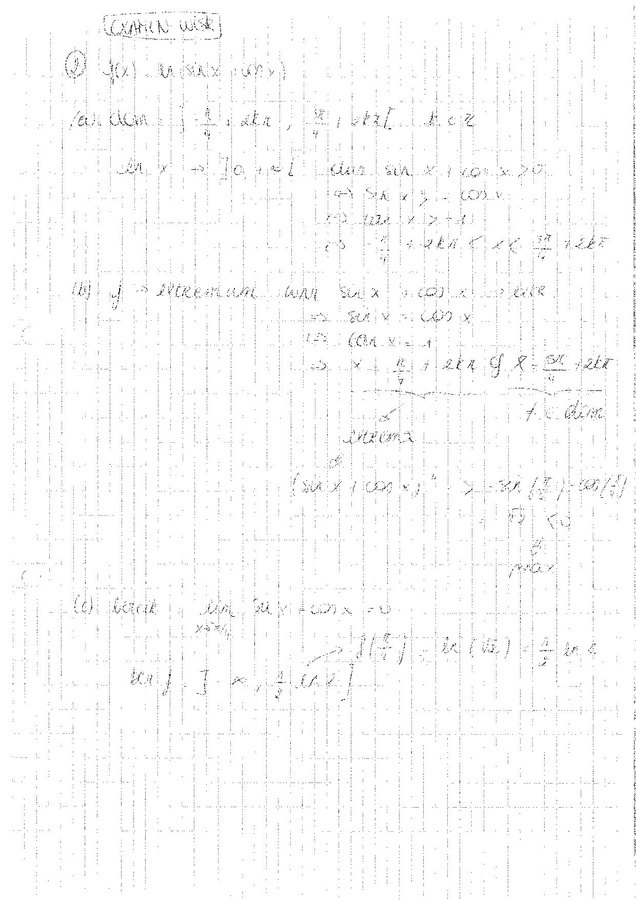 EXAMEN WISK
② f(x) = ln(sin x + cos x)
(a) dom = ]-π/4 + 2kπ, 3π/4 + 2kπ[ k ∈ Z
ln x → ]0, +∞[ dus sin x + cos x > 0
⇔ sin x > -cos x
⇔ tan x > -1
⇔ -π/4 + 2kπ < x < 3π/4 + 2kπ
(b) f → extremum wnr sin x + cos x →
⇔ sin x = cos x
⇔ tan x = 1
⇔ x = π/4 + 2kπ of x = 5π/4 + 2kπ
∉ dom
extrema
(sin x + cos x)" → -sin(π/4) - cos(π/4)
= -√2 < 0
max
(c) bereik lim sin x + cos x = 0
x→-π/4
f(π/4) = ln(√2) = 1/2 ln 2
ber f = ]-∞, 1/2 ln 2]